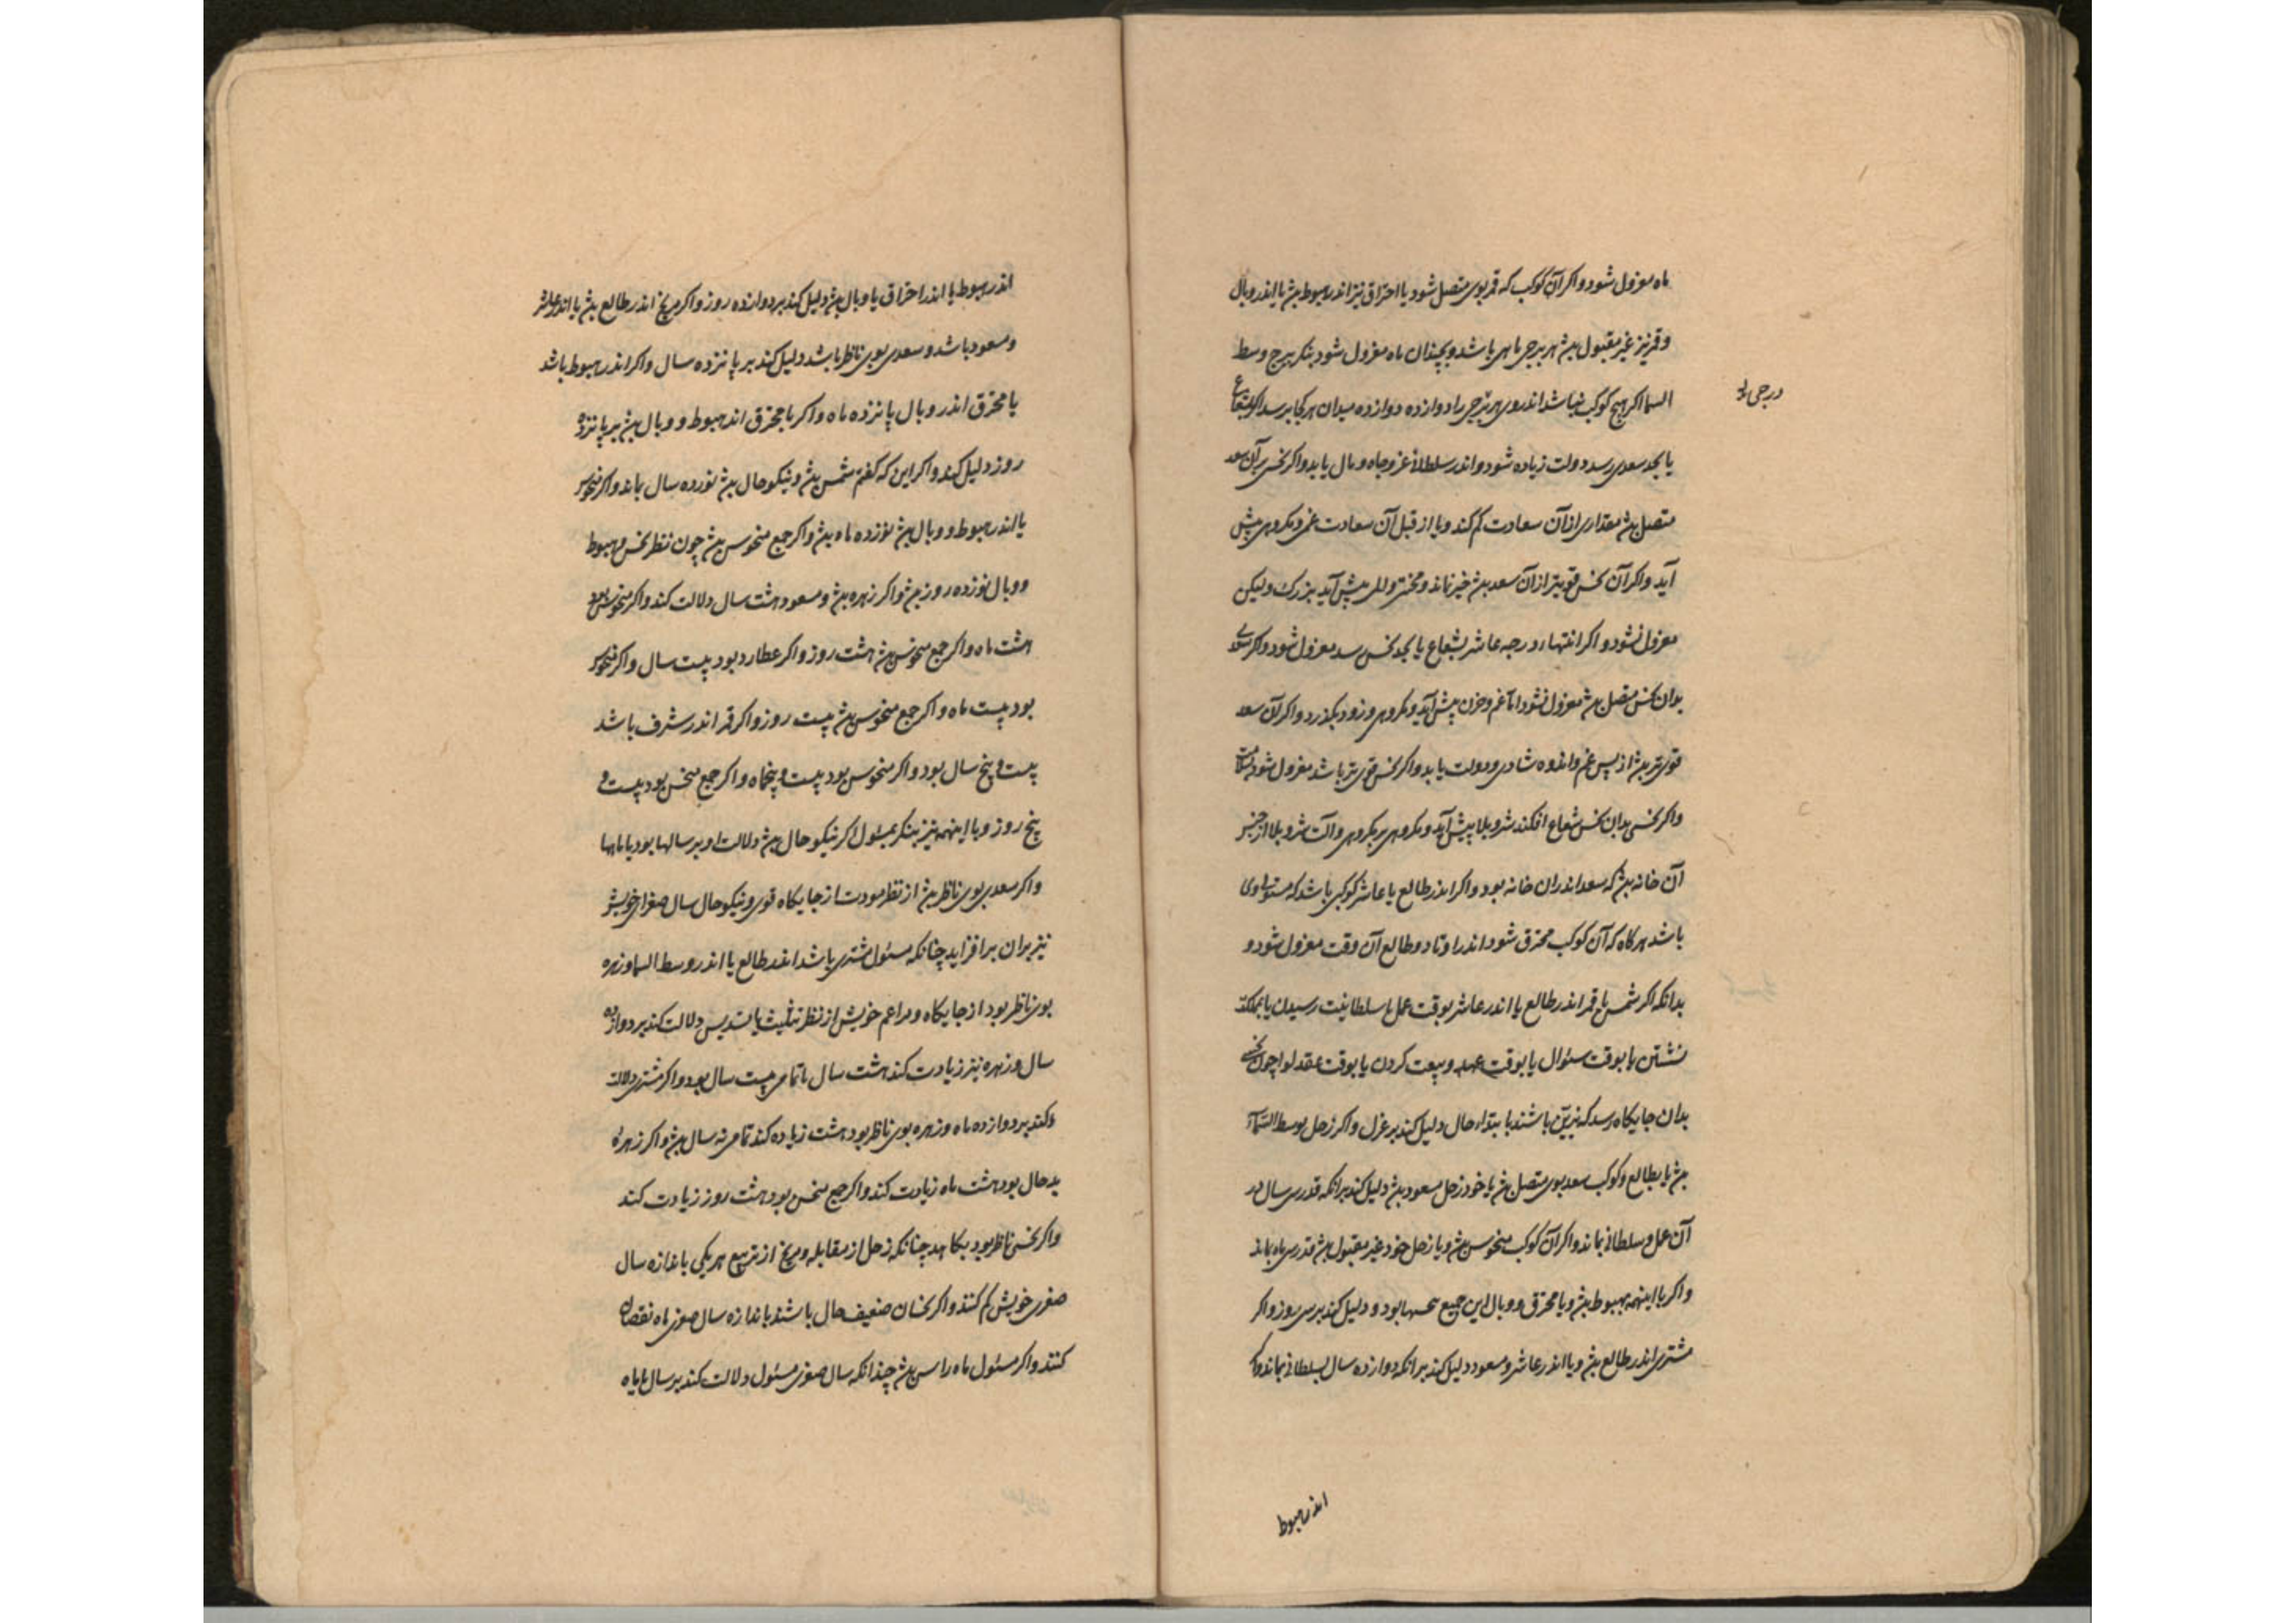 ماه معزول شود و اکر آن کوکب که قمر بوی متصل شود یا احتراق نیز اندر هبوط بیش یا اندر وبال
و قمر نیز غیر مقبول بیش هر برجی ماهی باشد و بچندان ماه معزول شود بنکر ببرج وسط
السما اکر هیچ کوکب نباشد اندر وی هر برجی را دوازده دوازده میدان هر کجا برسد اکر بشعاع
درجی را
یا بجد سعدی رسد دولت زیاده شود و اندر سلطانی عز و جاه و مال یابد و اکر نحسی بآن سعد
متصل بیش مقداری از آن سعادت کم کند و یا از قبل آن سعادت غمی و مکروهی پیش
آید و اکر آن نحس قویتر از آن سعد بیش خیر نماند و محنتی و پیش آید بزرک ولیکن
معزول نشود و اکر انتهاء درجه عاشر بشعاع یا بجد نحس رسد معزول شود و اکر سعدی
بدان نحس متصل بیش معزول نشود اما غم و حزن پیش آید و مکروهی و زود بکذرد و اکر آن سعد
قوی تر بیش از پس غم و اندوه شادی و دولت یابد و اکر نحس قوی تر باشد معزول شود
و اکر نحسی بدان نحس شعاع افکند شر و بلا پیش آید و مکروهی بر مکروهی و آلت شر و بلا از جنس
آن خانه بیش که سعد اندران خانه بود و اکر اندر طالع یا عاشر کوکبی باشد که مستولی
باشد هرکاه که آن کوکب محترق شود اندر اوتاد و طالع آن وقت معزول شود و
بدانکه اکر شمس یا قمر اندر طالع یا اندر عاشر بوقت عمل یا سلطانیت رسیدن یا بمملکت
نشستن یا بوقت سئوال یا بوقت عهد و بیعت کردن یا بوقت عقد لوا چون نحسی
بدان جایکاه رسد که نیرین باشند بابتداء حال دلیل کند بر عزل و اکر زحل بوسط السمآء
بیش یا بطالع و کوکب سعد بوی متصل بیش یا خود زحل مسعود بیش دلیل کند برانکه قدر سی سال در
آن عمل و سلطانی بماند و اکر آن کوکب منحوس بیش و یا زحل خود غیر مقبول بیش قدر سی ماه بماند
و اکر با اینهمه بهبوط بیش و یا محترق و وبال این جمیع نحسها بود و دلیل کند بر سی روز و اکر
مشتری اندر طالع بیش و یا اندر عاشر و مسعود دلیل کند برانکه دوازده سال بسلطانی بماند و اکر
اندر هبوط
اندر هبوط یا اندر احتراق یا وبال بیش دلیل کند بر دوازده روز و اکر مریخ اندر طالع بیش یا اندر عاشر
و مسعود باشد و سعدی بوی ناظر باشد دلیل کند بر پانزده سال و اکر اندر هبوط باشد
یا محترق اندر وبال پانزده ماه و اکر با محترق اندر هبوط و وبال بیش بر پانزده
روز دلیل کند و اکر این که کفتم شمس بیش و نیکو حال بیش نوزده سال بماند و اکر منحوس
یا اندر هبوط و وبال بیش نوزده ماه بیش و اکر جمع منحوس بیش چون نظر نحس و هبوط
و وبال نوزده روز بیش و اکر زهره بیش و مسعود هشت سال دلالت کند و اکر منحوس بود
هشت ماه و اکر جمع منحوس بیش هشت روز و اکر عطارد بود بیست سال و اکر منحوس
بود بیست ماه و اکر جمع منحوس بیش بیست روز و اکر قمر اندر شرف باشد
بیست و پنج سال بود و اکر منحوس بود بیست و پنج ماه و اکر جمع نحس بود بیست و
پنج روز و با اینهمه نیز بنکر بمسئول اکر نیکو حال بیش دلالت او بر سالها بود یا ماهها
و اکر سعدی بوی ناظر بیش از نظر مودت از جایکاه قوی و نیکو حال سال صغرای خویش
نیز بران بر افزاید چنانکه مسئول مشتری باشد اندر طالع یا اندر وسط السما و زهره
بوی ناظر بود از جایکاه و مراعم خویش از نظر تثلیث یا تسدیس دلالت کند بر دوازده
سال و زهره نیز زیادت کند هشت سال تا تمامی بیست سال بود و اکر مشتری دلالت
کند بر دوازده ماه و زهره بوی ناظر بود هشت زیاده کند تمامی نه سال بیش و اکر زهره
بدحال بود هشت ماه زیادت کند و اکر جمع نحس بود هشت روز زیادت کند
و اکر نحس ناظر بود بکاهد چنانکه زحل از مقابله و مریخ از تربیع هر یکی باندازه سال
صغری خویش کم کنند و اکر نحسان ضعیف حال باشند باندازه سال صغری ماه نقصان
کنند و اکر مسئول ماه راس بیش چندانکه سال صغری مسئول دلالت کند بر سال یا ماه